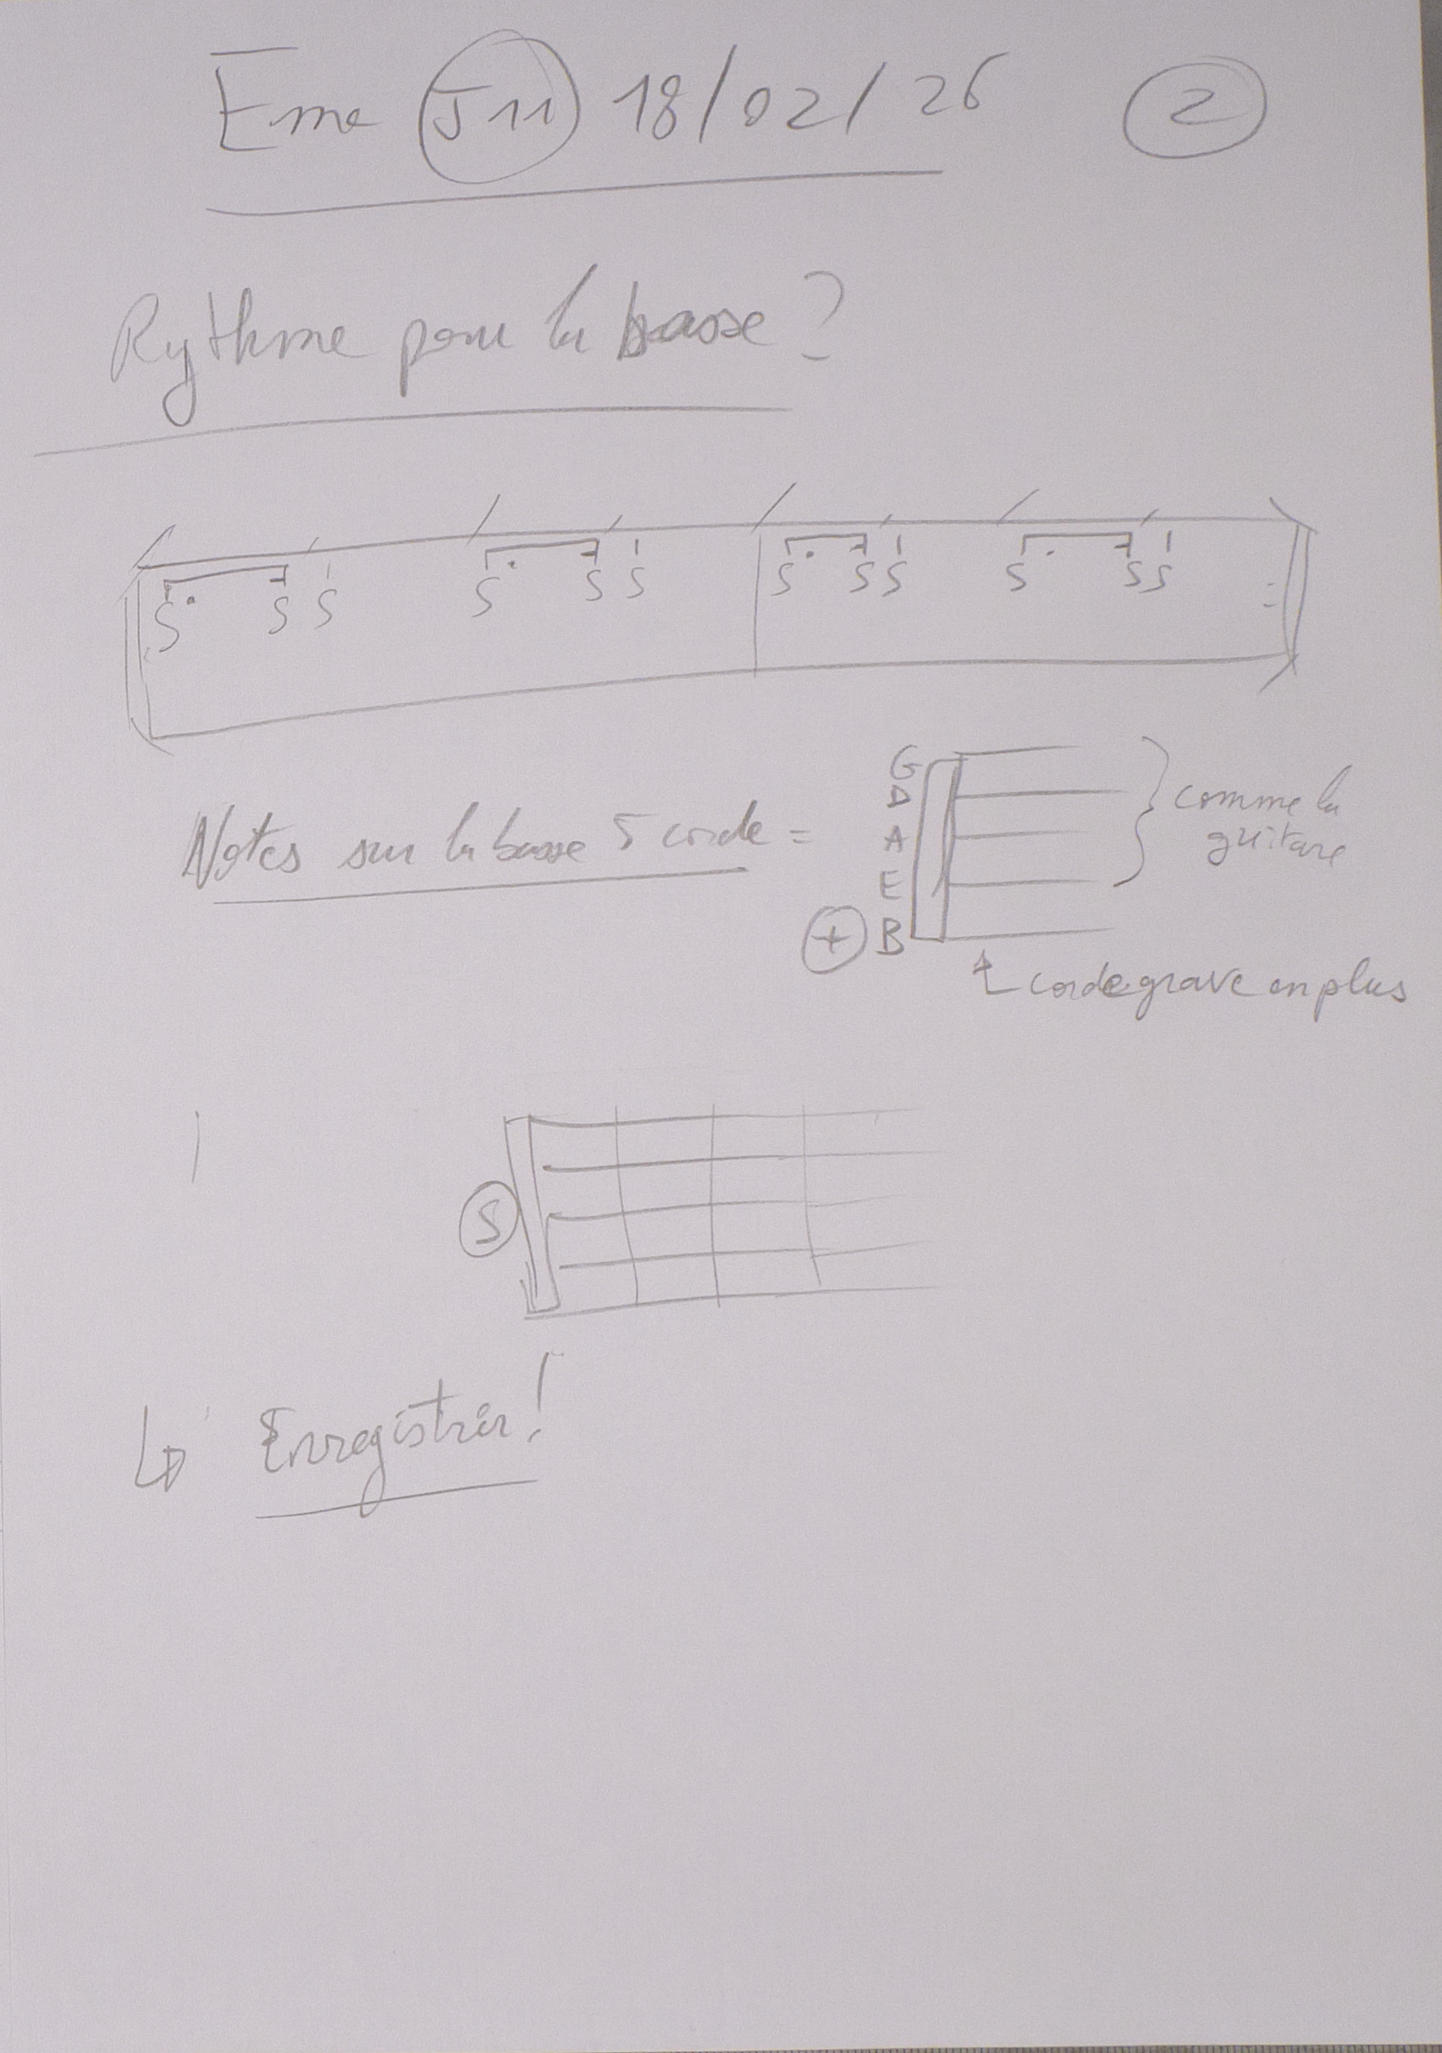 Eme J11 18/02/26 2
Rythme pour la basse ?
S. S S S. S S S. S S S. S S
Notes sur la basse 5 corde =
G
D
A
E
+ B
comme la
guitare
corde grave en plus
S
Enregistrer !